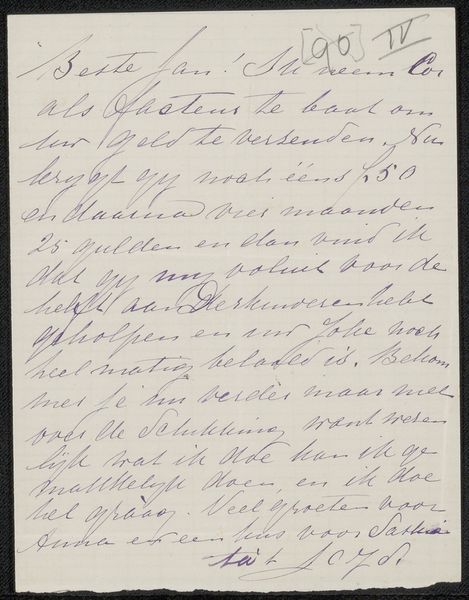 [90] IV
Beste Jan! Ik neem Cor
als facteur te baat om
uw geld te verzenden. Nu
krijgt gij noch ééns f 50
en daarna vier maanden
25 gulden en dan vind ik
dat gij mij voluit voor de
helft aan Derkinderen hebt
geholpen en uw Joke noch
heel matig beloond is. Bekom
mer je nu verder maar niet
over de schikking want weren
lijk wat ik doe kan ik ge
makkelijk doen, en ik doe
het graag. Veel groeten voor
Anna en een kus voor Saskia
tàt